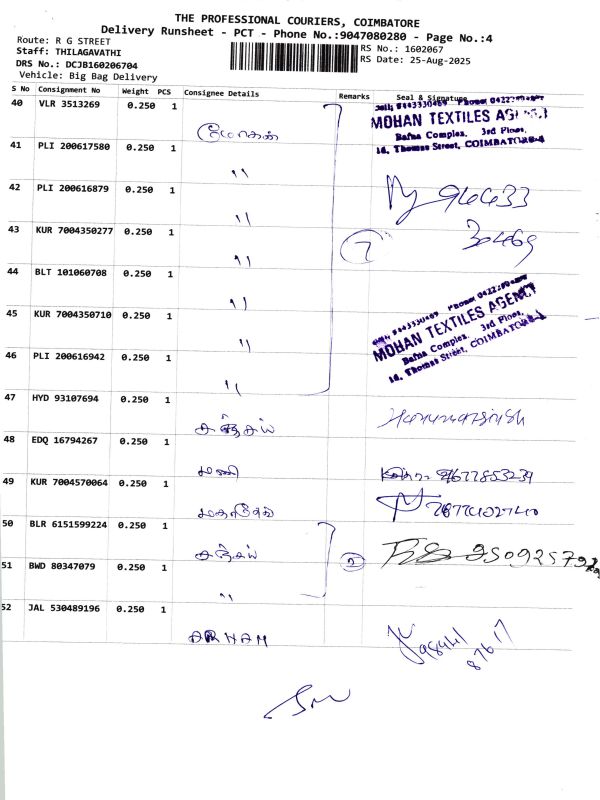 THE PROFESSIONAL COURIERS, COIMBATORE
Delivery Runsheet - PCT - Phone No.:9047080280 - Page No.:4
Route: R G STREET
Staff: THILAGAVATHI
DRS No.: DCJB160206704
Vehicle: Big Bag Delivery
RS No.: 1602067
RS Date: 25-Aug-2025
S No Consignment No Weight PCS Consignee Details Remarks Seal & Signature
40 VLR 3513269 0.250 1 மோகன்
MOHAN TEXTILES AGENCY
Bafna Complex, 3rd Floor,
16, Thomas Street, COIMBATORE-1
41 PLI 200617580 0.250 1 "
42 PLI 200616879 0.250 1 " 94433
30469
43 KUR 7004350277 0.250 1 " 7
44 BLT 101060708 0.250 1 "
45 KUR 7004350710 0.250 1 "
MOHAN TEXTILES AGENCY
Bafna Complex, 3rd Floor,
16, Thomas Street, COIMBATORE-1
46 PLI 200616942 0.250 1 "
47 HYD 93107694 0.250 1
48 EDQ 16794267 0.250 1 மணி 9677853239
49 KUR 7004570064 0.250 1 மகாதேவ்
50 BLR 6151599224 0.250 1 சஞ்சய் 2
51 BWD 80347079 0.250 1 "
52 JAL 530489196 0.250 1 ARHAM